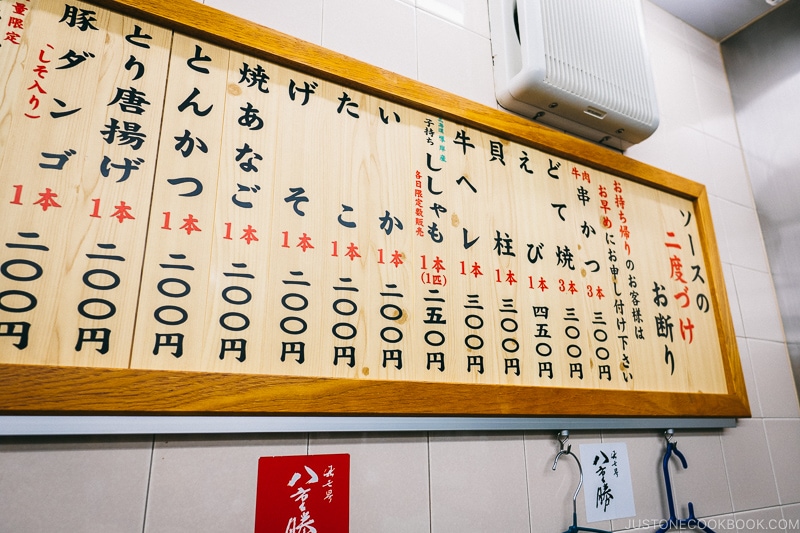 ソースの
二度づけ
お断り
お持ち帰りのお客様は
お早めにお申し付け下さい
牛肉 串かつ 3本 三〇〇円
どて焼 3本 三〇〇円
えび 1本 四五〇円
貝柱 1本 三〇〇円
牛ヘレ 1本 三〇〇円
子持ち ししゃも 各日限定数販売 1本(1匹) 二五〇円
いか 1本 二〇〇円
たこ 1本 二〇〇円
げそ 1本 二〇〇円
焼あなご 1本 二〇〇円
とんかつ 1本 二〇〇円
とり唐揚げ 1本 二〇〇円
量限定 豚ダンゴ (しそ入り) 1本 二〇〇円
八重勝
八重勝
JUSTONECOOKBOOK.COM